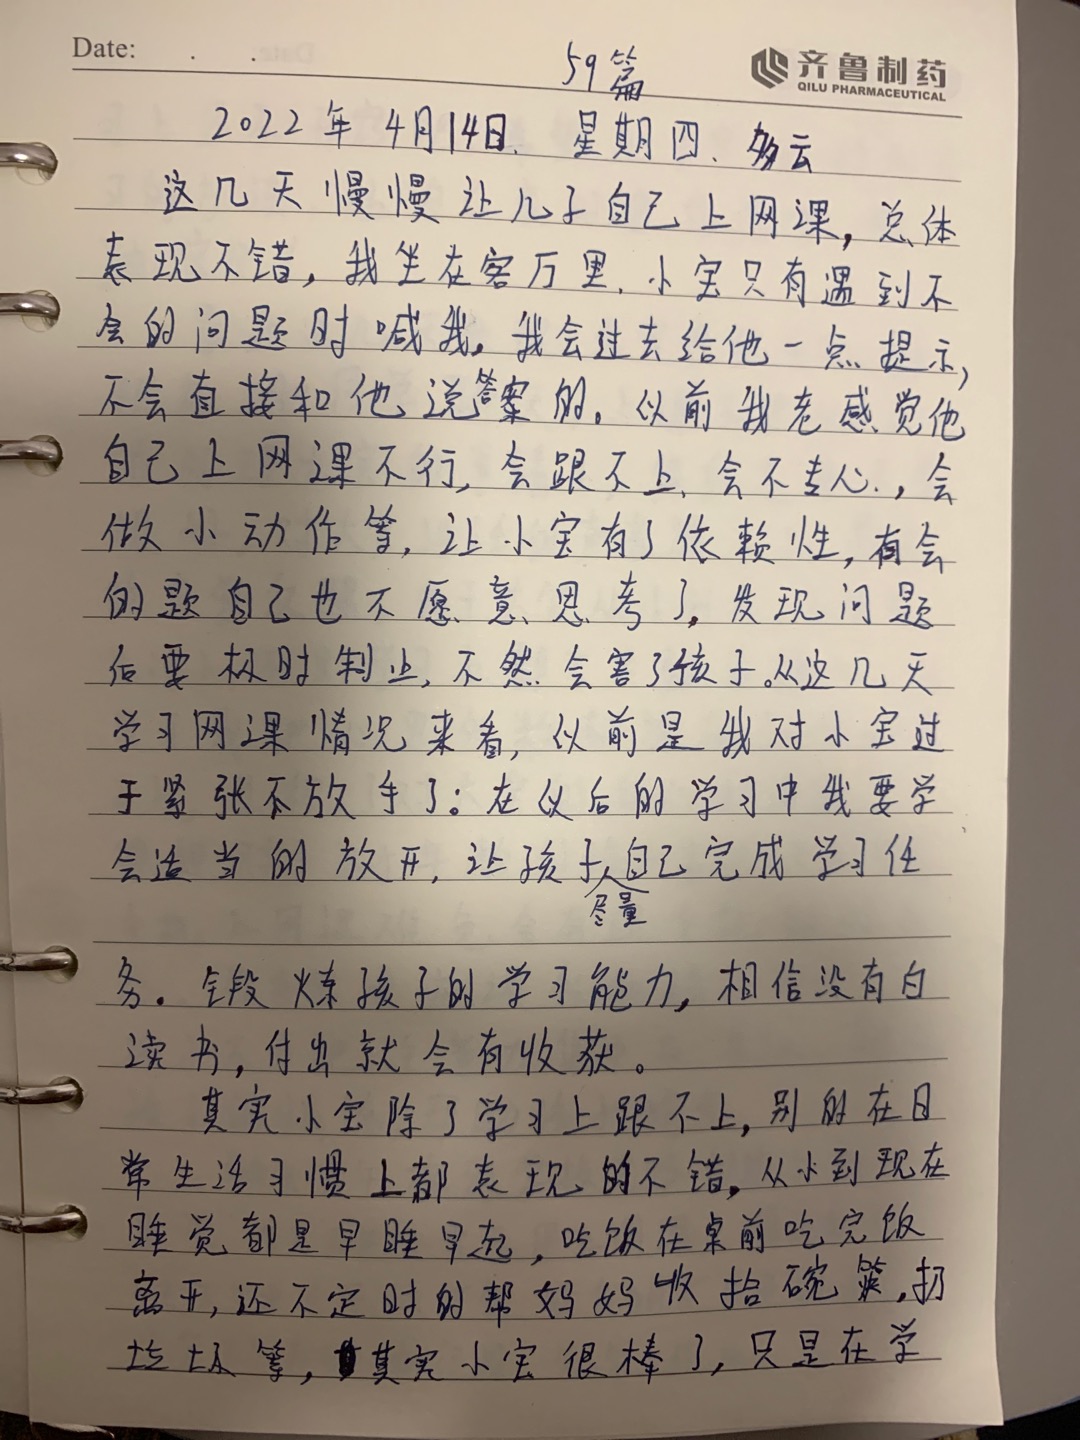 Date: . .
59篇
齐鲁制药
QILU PHARMACEUTICAL
2022年4月14日. 星期四、多云
这几天慢慢让儿子自己上网课，总体
表现不错，我坐在客万里.小宝只有遇到不
会的问题时喊我。我会过去给他一点提示，
不会直接和他说答案的。以前我老感觉他
自己上网课不行，会跟不上、会不专心.，会
做小动作等，让小宝有了依赖性，有会
的题自己也不愿意思考了。发现问题
后要极时制止，不然会害了孩子。从这几天
学习网课情况来看，以前是我对小宝过
于紧张不放手了：在以后的学习中我要学
会适当的放开，让孩子自己完成学习任
尽量
务。全段炼孩子的学习能力，相信没有白
读书，付出就会有收获。
其实小宝除了学习上跟不上，别的在日
常生活习惯上都表现的不错，从小到现在
睡觉都是早睡早起，吃饭在桌前吃完饭
离开，还不定时的帮妈妈收拾碗筷，扔
垃圾等，其实小宝很棒了，只是在学